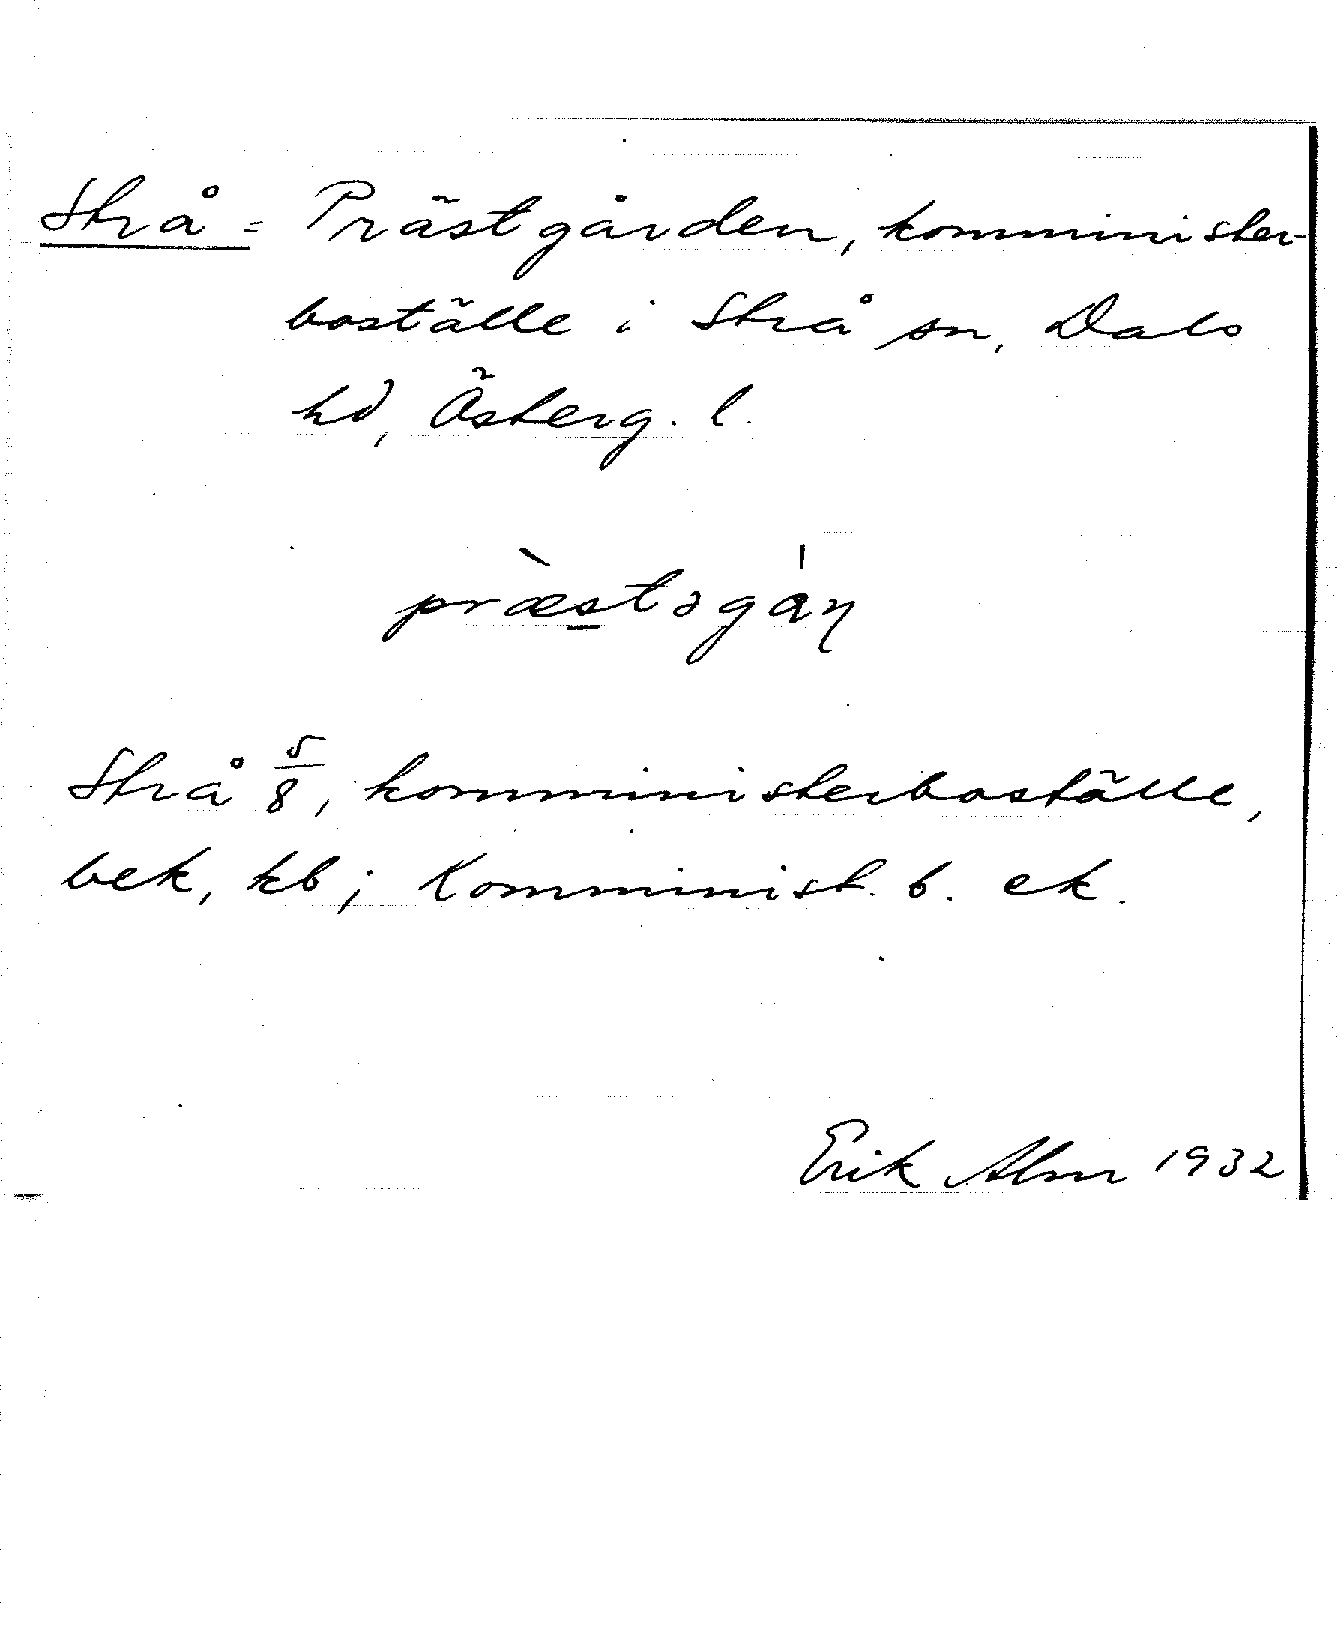 Strå = Prästgården, komminister-
boställe i Strå sn, Dals
hd, Österg. l.
præ̀stəgán
Strå 5/8, komministerboställe,
bek, kb; Komminist. b. ek.
Erik Alm 1932